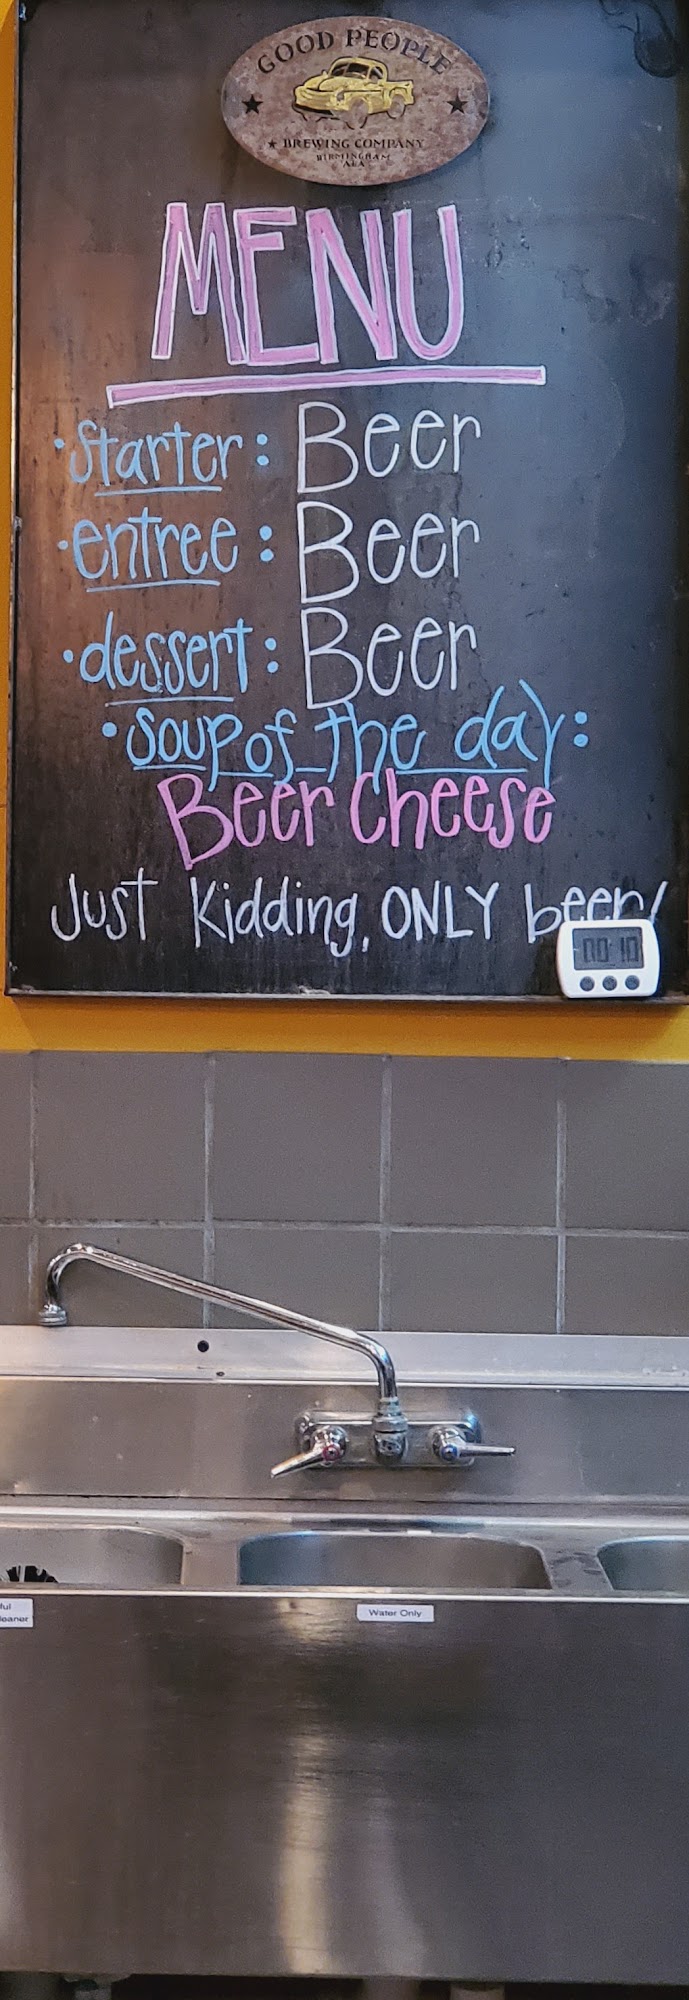 GOOD PEOPLE
BREWING COMPANY
BIRMINGHAM
ALA
MENU
• Starter: Beer
• entree: Beer
• dessert: Beer
• Soup of the day:
Beer Cheese
Just Kidding, ONLY beer!
00 10
Water Only